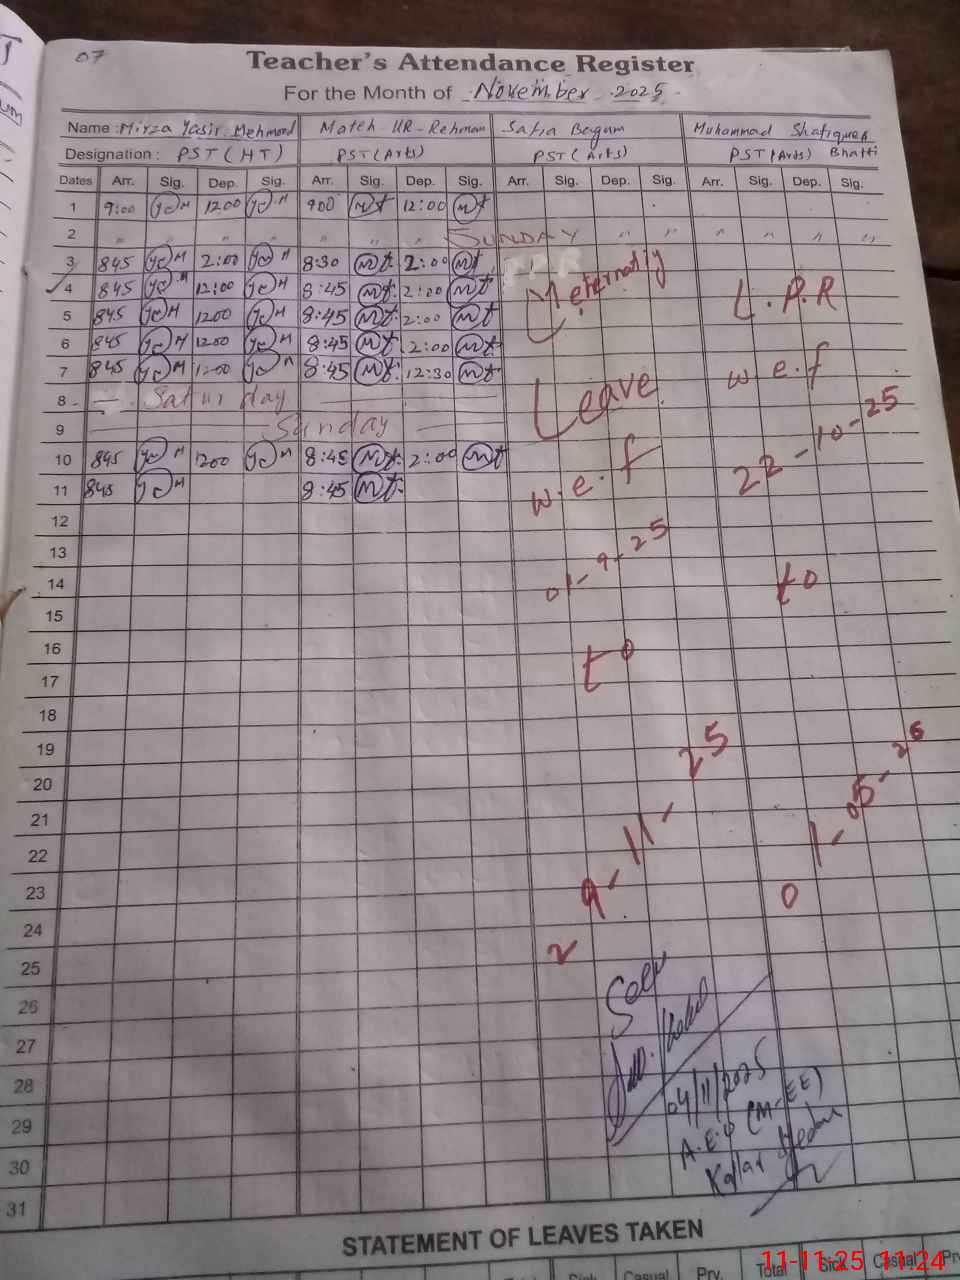 07
Teacher's Attendance Register
For the Month of November 2025
Name : Mirza Yasir Mehmood Mateh-UR-Rehman Safia Begum Muhammad Shafique
Designation : PST (HT) PST (Arts) PST (Arts) PST (Arts) Bhatti
Dates Arr. Sig. Dep. Sig. Arr. Sig. Dep. Sig. Arr. Sig. Dep. Sig. Arr. Sig. Dep. Sig.
1 9:00 1200 900 12:00
2 " " " " " " SUNDAY " " " " " "
3 845 2:00 8:30 2:00
4 845 12:00 8:45 2:00
5 845 1200 8:45 2:00
6 845 1200 8:45 2:00
7 845 1200 8:45 12:30
8 Saturday
9 Sunday
10 845 1200 8:45 2:00
11 845 8:45
12
13
14
15
16
17
18
19
20
21
22
23
24
25
26
27
28
29
30
31
Meternatiy
Leave
w.e.f
01-9-25
to
29-11-25
L.P.R
w.e.f
22-10-25
to
01-05-26
Seen
04/11/2025
A.E.O (M-EE)
Kallar
STATEMENT OF LEAVES TAKEN
Total Sick Casual Prv. Total Sick Casual Prv
11-11-25 11:24